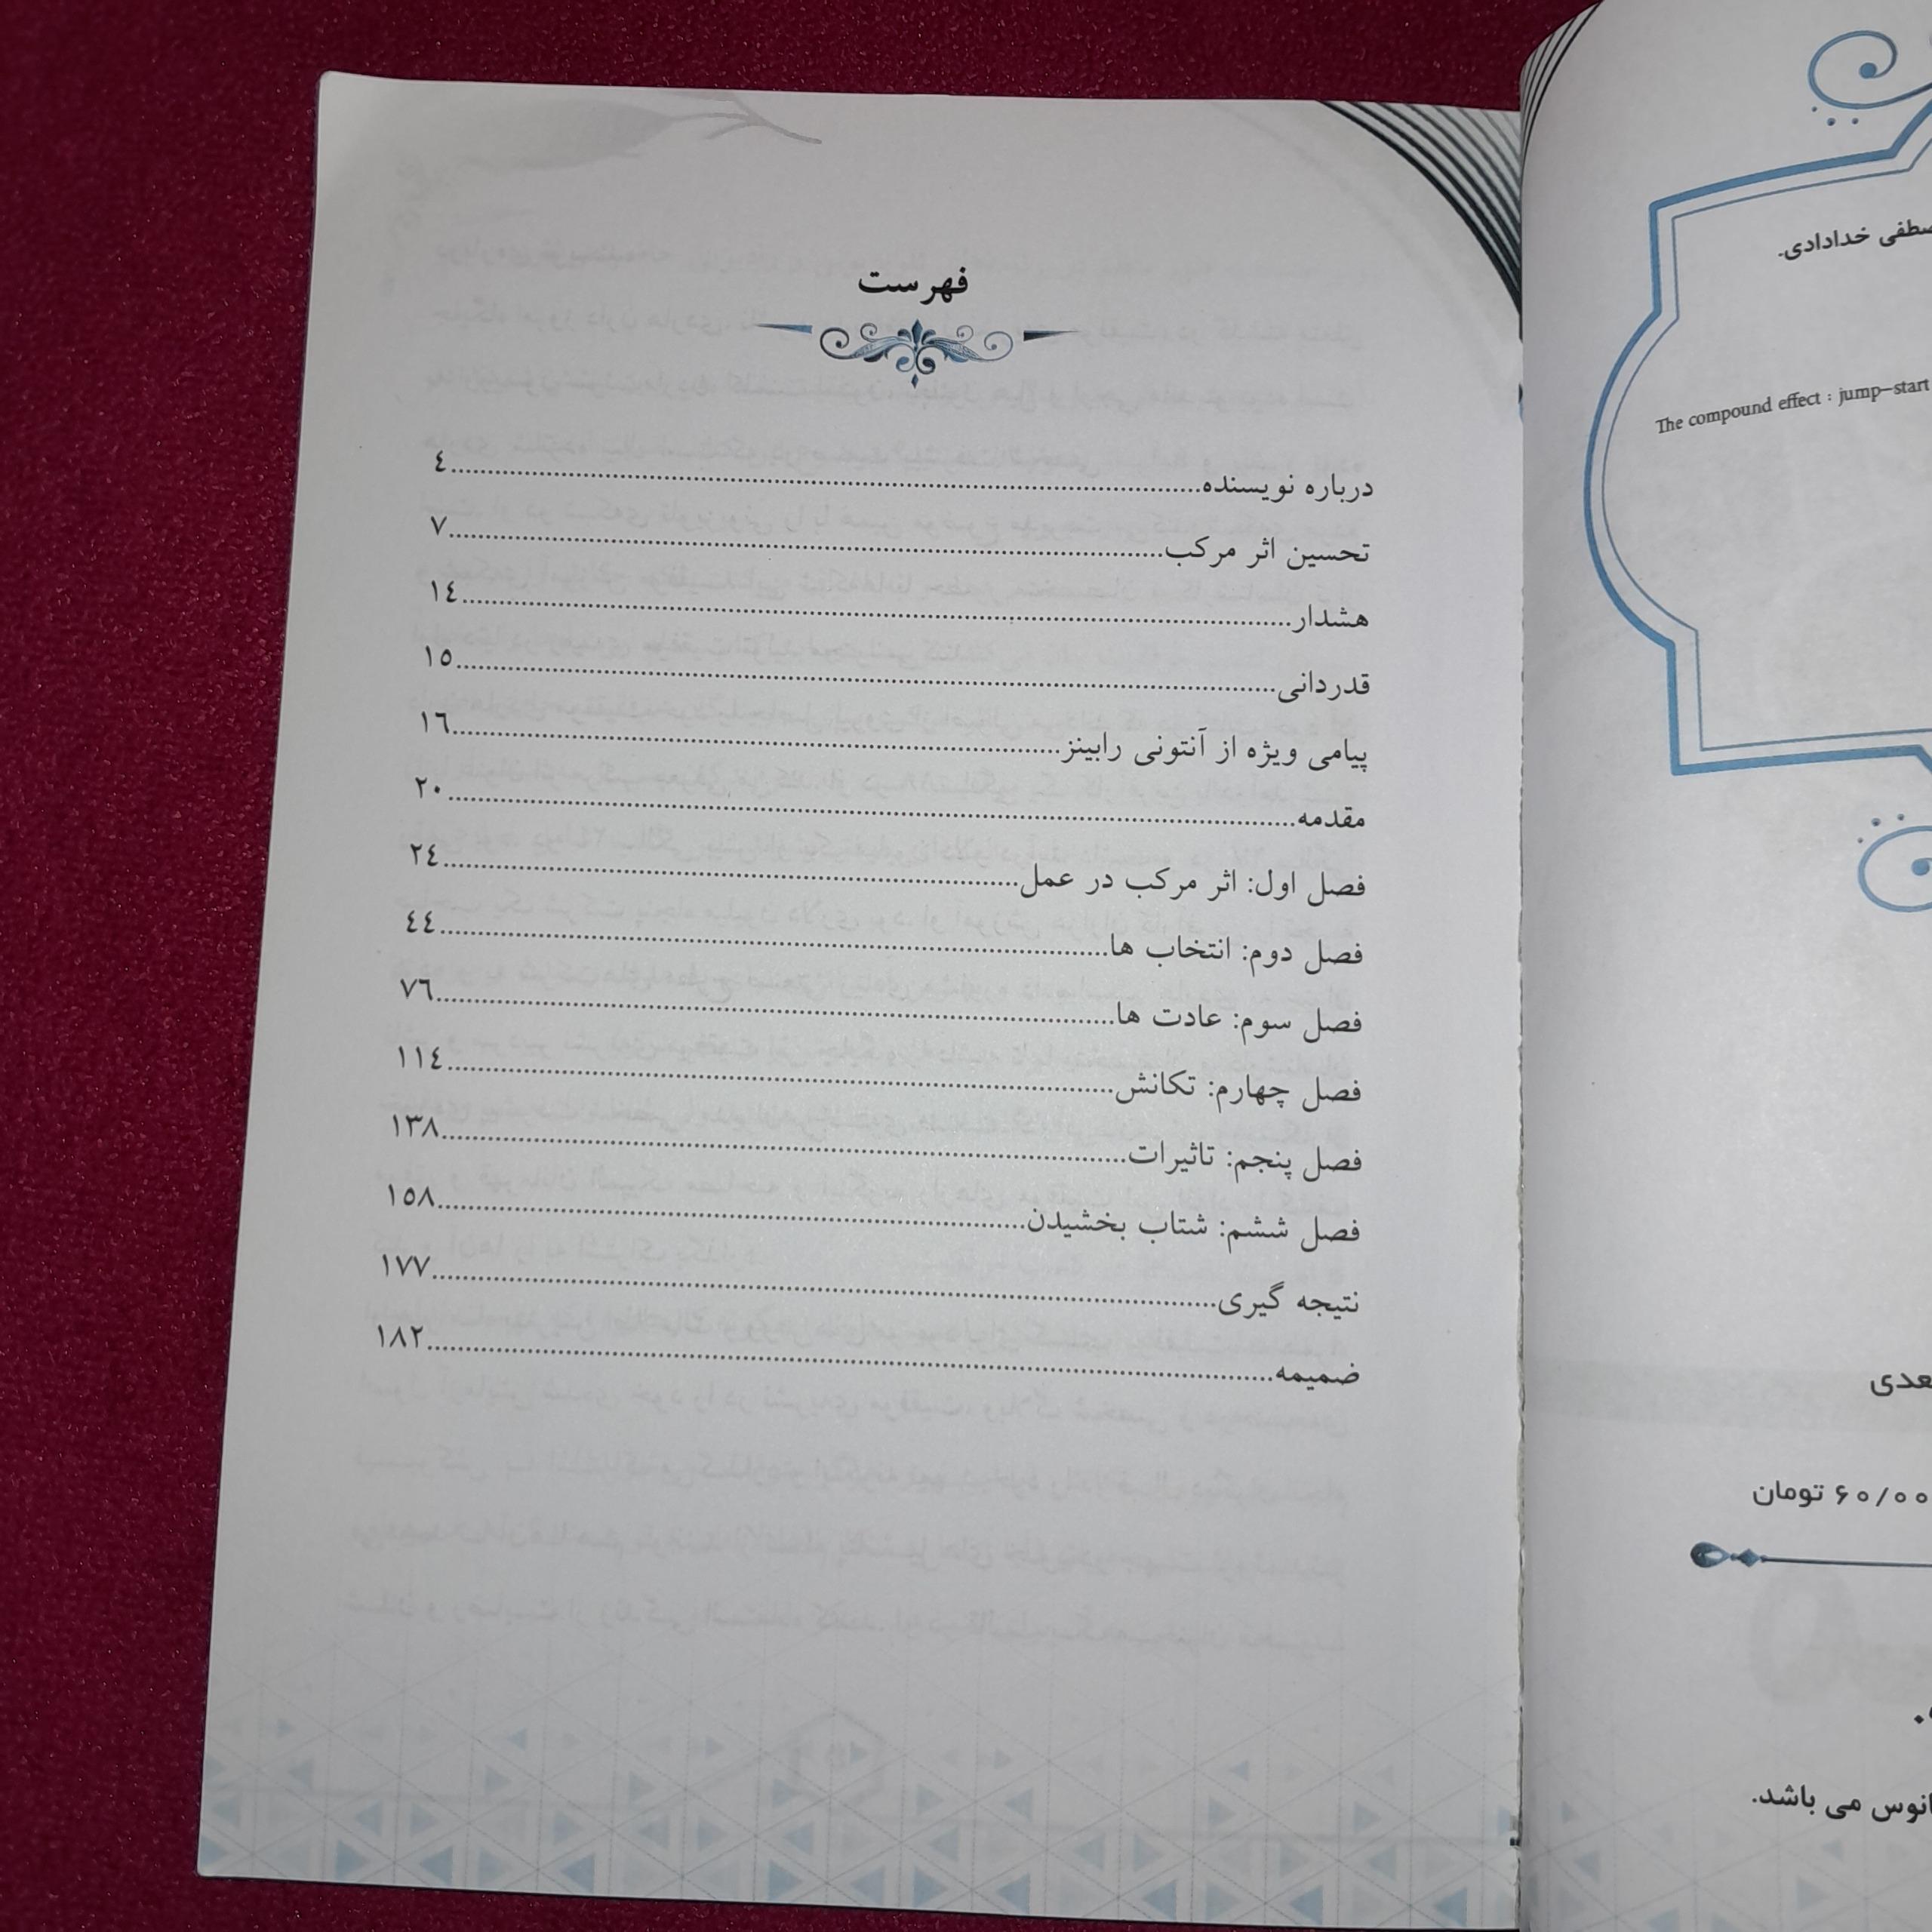 فهرست
درباره نویسنده................٤
تحسین اثر مرکب................٧
هشدار................١٤
قدردانی................١٥
پیامی ویژه از آنتونی رابینز................١٦
مقدمه................٢٠
فصل اول: اثر مرکب در عمل................٢٤
فصل دوم: انتخاب ها................٤٤
فصل سوم: عادت ها................٧٦
فصل چهارم: تکانش................١١٤
فصل پنجم: تاثیرات................١٣٨
فصل ششم: شتاب بخشیدن................١٥٨
نتیجه گیری................١٧٧
ضمیمه................١٨٢
خدادادی.
The compound effect : jump–start
تومان
می باشد.